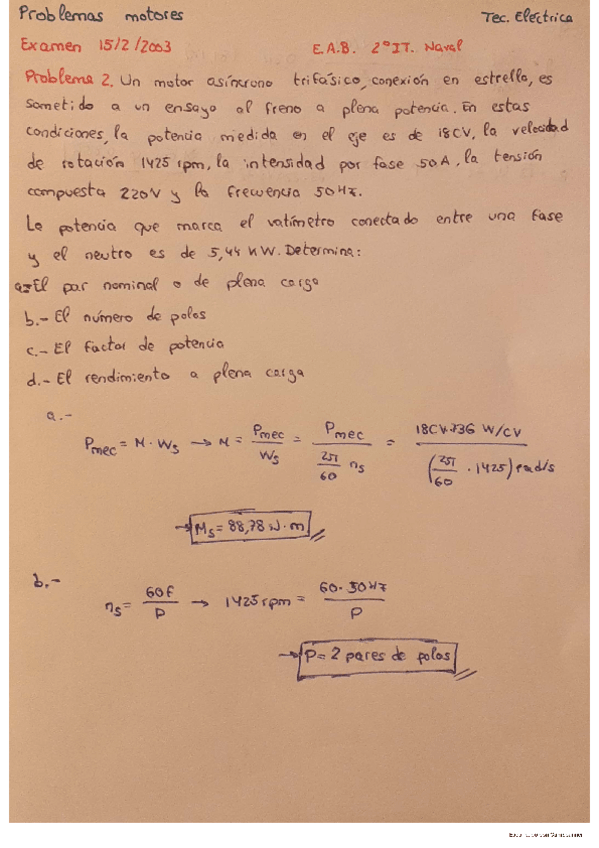 Problemas motores Tec. Eléctrica
Examen 15/2/2003 E.A.B. 2º IT. Naval
Problema 2. Un motor asíncrono trifásico, conexión en estrella, es
sometido a un ensayo al freno a plena potencia. En estas
condiciones, la potencia medida en el eje es de 18CV, la velocidad
de rotación 1425 rpm, la intensidad por fase 50A, la tensión
compuesta 220V y la frecuencia 50Hz.
La potencia que marca el vatímetro conectado entre una fase
y el neutro es de 5,44 KW. Determina:
a.- El par nominal o de plena carga
b.- El número de polos
c.- El factor de potencia
d.- El rendimiento a plena carga
a.-
Pmec = M · Ws → M = Pmec / Ws = Pmec / (2π/60 ns) = 18CV·736 W/CV / (2π/60 · 1425) rad/s
→ Ms = 88,78 N·m
b.-
ns = 60f / P → 1425 rpm = 60·50Hz / P
→ P = 2 pares de polos